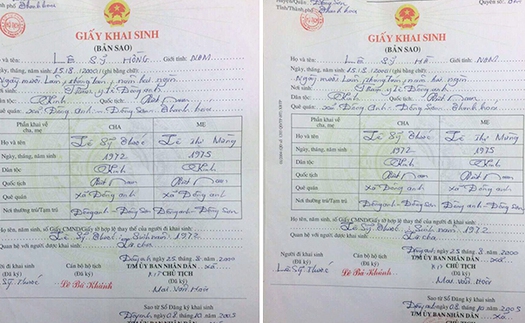 Thanh hoá
GIẤY KHAI SINH
(BẢN SAO)
và tên: LÊ SỸ HỒNG Giới tính: NAM
ngày, tháng, năm sinh: 15.8.(2001) (ghi bằng chữ):
Ngày mười lăm, tháng tám, năm hai ngàn
Trạm y tế Đông anh
tộc: Kinh Quốc tịch: Việt Nam
Quê quán: xã Đông Anh - Đông Sơn - Thanh hoá
Phần khai về cha, mẹ CHA MẸ
Họ và tên Lê Sỹ Thuốc Lê Thị Mừng
Ngày, tháng, năm sinh 1972 1975
Dân tộc Kinh Kinh
Quốc tịch Việt Nam Việt Nam
Quê quán xã Đông anh xã Đông anh
Nơi thường trú/Tạm trú Đông anh - Đông Sơn Đông anh - Đông Sơn
Họ, tên, số Giấy CMND/Giấy tờ hợp lệ thay thế của người đi khai sinh
Lê Sỹ Thuốc Sinh năm 1972
Quan hệ với người được khai sinh: Là cha
Đông anh ngày 25 tháng 8 năm 2000
đi khai sinh Cán bộ hộ tịch T/M ỦY BAN NHÂN DÂN xã
(Đã ký) K/T CHỦ TỊCH
Sỹ Thuốc Lê Bá Khánh (Đã ký)
Mai Văn Hoà
Sao từ Sổ Đăng ký khai sinh
Đông anh, ngày 08 tháng 10 năm 2003
T/M ỦY BAN NHÂN DÂN
Huyện/Quận: Đông Sơn
Tỉnh/Thành phố: Thanh hoá
Quyển số:
GIẤY KHAI SINH
(BẢN SAO)
Họ và tên: LÊ SỸ HÀ Giới tính: NAM
Ngày, tháng, năm sinh: 15.8.(2001) (ghi bằng chữ):
Ngày mười lăm, tháng tám, năm hai ngàn
Nơi sinh: Trạm y tế Đông anh
Dân tộc: Kinh Quốc tịch: Việt Nam
Quê quán: xã Đông Anh - Đông Sơn - Thanh hoá
Phần khai về cha, mẹ CHA MẸ
Họ và tên Lê Sỹ Thuốc Lê Thị Mừng
Ngày, tháng, năm sinh 1972 1975
Dân tộc Kinh Kinh
Quốc tịch Việt Nam Việt Nam
Quê quán xã Đông anh xã Đông anh
Nơi thường trú/Tạm trú Đông anh - Đông Sơn Đông anh - Đông Sơn
Họ, tên, số Giấy CMND/Giấy tờ hợp lệ thay thế của người đi khai sinh
Lê Sỹ Thuốc Sinh năm 1972
Quan hệ với người được khai sinh: Là cha
Đông anh ngày 25 tháng 8 năm 2000
Người đi khai sinh Cán bộ hộ tịch T/M ỦY BAN NHÂN DÂN xã
(Đã ký) (Đã ký) K/T CHỦ TỊCH
Lê Sỹ Thuốc Lê Bá Khánh (Đã ký)
Mai Văn Hoà
Sao từ Sổ Đăng ký khai sinh
Đông anh, ngày 08 tháng 10 năm 2003
T/M ỦY BAN NHÂN DÂN xã